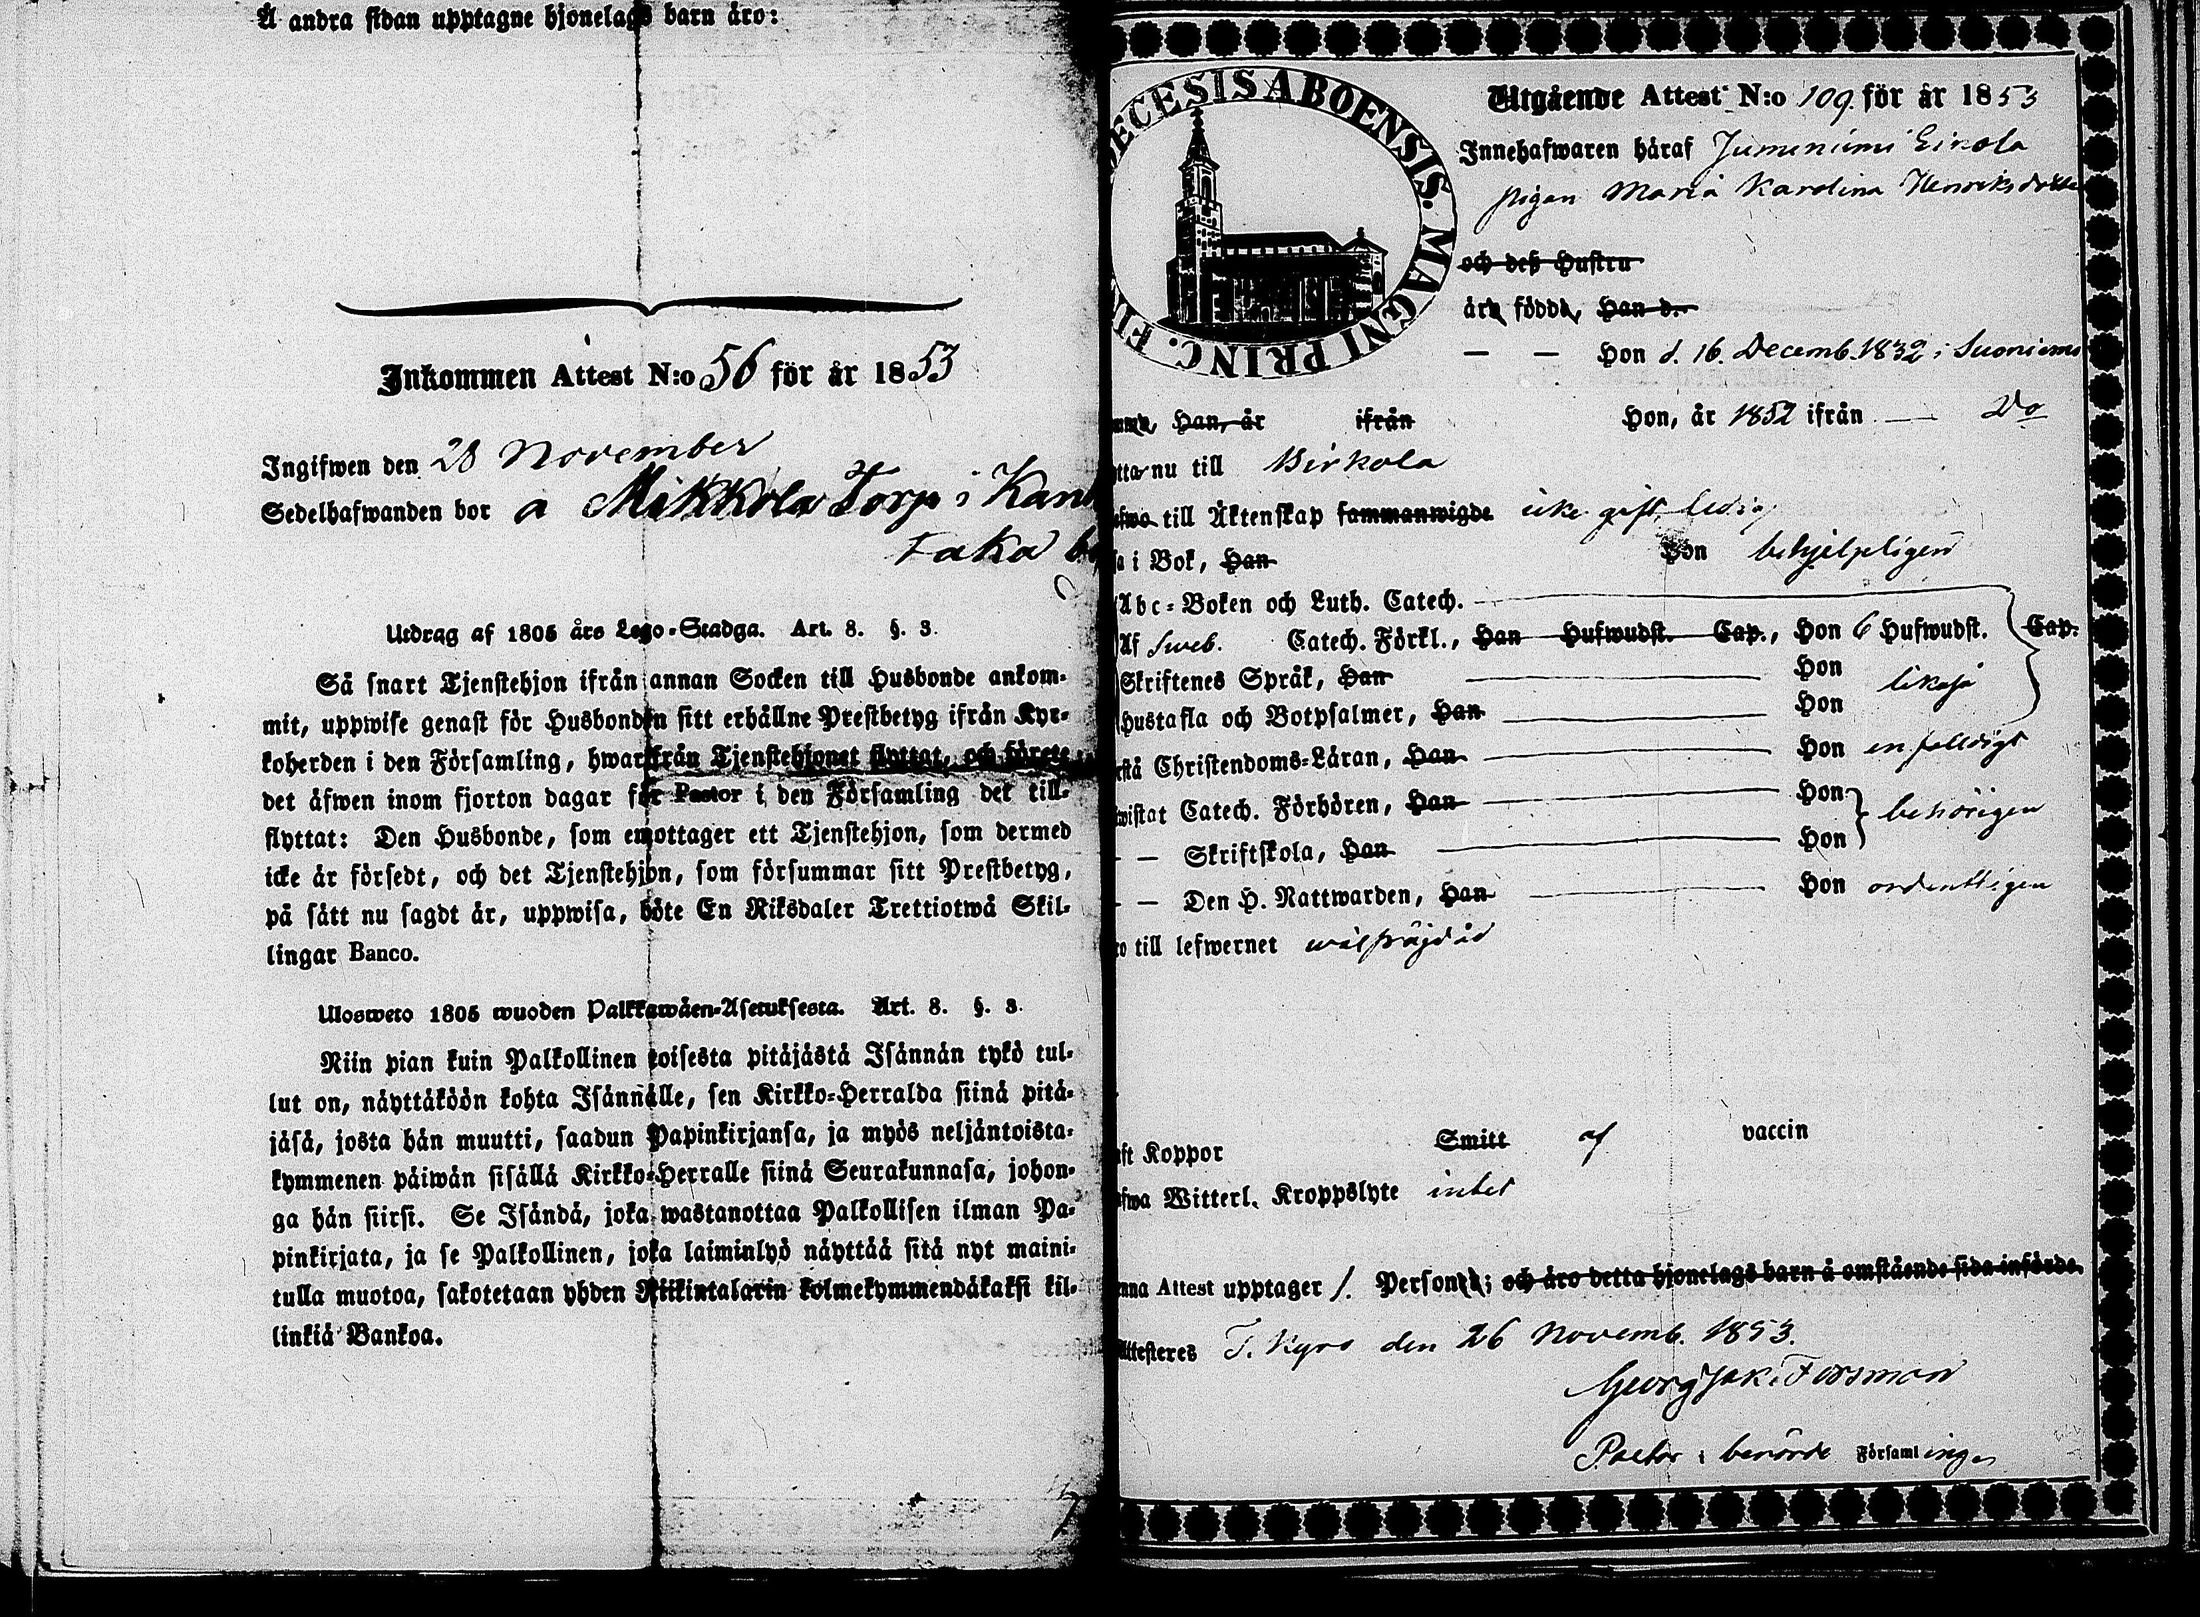 Å andra sidan upptagne hjonelags barn äro:
Inkommen Attest N:o 56 för år 1853
Ingifwen den 28 November
Sedelhafwanden bor å Mikkola Torp i
Utdrag af 1805 års Lego-Stadga. Art. 8. §. 3.
Så snart Tjenstehjon ifrån annan Socken till Husbonde ankom-
mit, uppwise genast för Husbonden sitt erhållne Prestbetyg ifrån Kyr-
koherden i den Församling, hwarifrån Tjenstehjonet flyttat, och förete
det äfwen inom fjorton dagar för Pastor i den Församling det till-
flyttat: Den Husbonde, som emottager ett Tjenstehjon, som dermed
icke är försedt, och det Tjenstehjon, som försummar sitt Prestbetyg,
på sätt nu sagdt är, uppwisa, böte En Riksdaler Trettiotwå Skil-
lingar Banco.
Ulosweto 1805 wuoden Palkkawäen-Asetuksesta. Art. 8. §. 3.
Niin pian kuin Palkollinen toisesta pitäjästä Isännän tykö tul-
lut on, näyttäköön kohta Isännälle, sen Kirkko-Herralda siinä pitä-
jäsä, josta hän muutti, saadun Papinkirjansa, ja myös neljäntoista-
kymmenen päiwän sisällä Kirkko-Herralle siinä Seurakunnasa, johon-
ga hän siirsi. Se Isändä, joka wastanottaa Palkollisen ilman Pa-
pinkirjata, ja se Palkollinen, joka laiminlyö näyttää sitä nyt maini-
tulla muotoa, sakotetaan yhden Riikintalarin kolmekymmendäkaksi kil-
linkiä Bankoa.
ECESIS ABOENSIS. MAGNI PRINC. FI
Utgående Attest N:o 109. för år 1853
Innehafwaren häraf Jumeniemi Eirola
pigan Maria Karolina Henriksdotter
och deß Hustru
äro födde, Han d.
— — Hon d. 16. Decemb. 1832 i Suoniemi
Han, år ifrån Hon, år 1852 ifrån — Do
nu till Birkala
till Äktenskap sammanwigde icke gift, ledig
i Bok, Han Hon behjelpligen
Abc-Boken och Luth. Catech.
Af Sweb. Catech. Förkl., Han Hufwudst. Cap., Hon 6 Hufwudst. Cap.
Skriftenes Språk, Han Hon likaså
Hustafla och Botpsalmer, Han Hon
Christendoms-Läran, Han Hon enfaldigt
Catech. Förhören, Han Hon behörigen
— — Skriftskola, Han Hon
— — Den H. Nattwarden, Han Hon ordentligen
till lefwernet wälfräjdad
Koppor Smitt af vaccin
Witterl. Kroppslyte intet
Attest upptager 1. Personer; och äro detta hjonelags barn å omstående sida införde.
Attesteres T. Kyro den 26 Novemb. 1853.
Georg Jak. Forsman
Pastor i berörde Församlingen